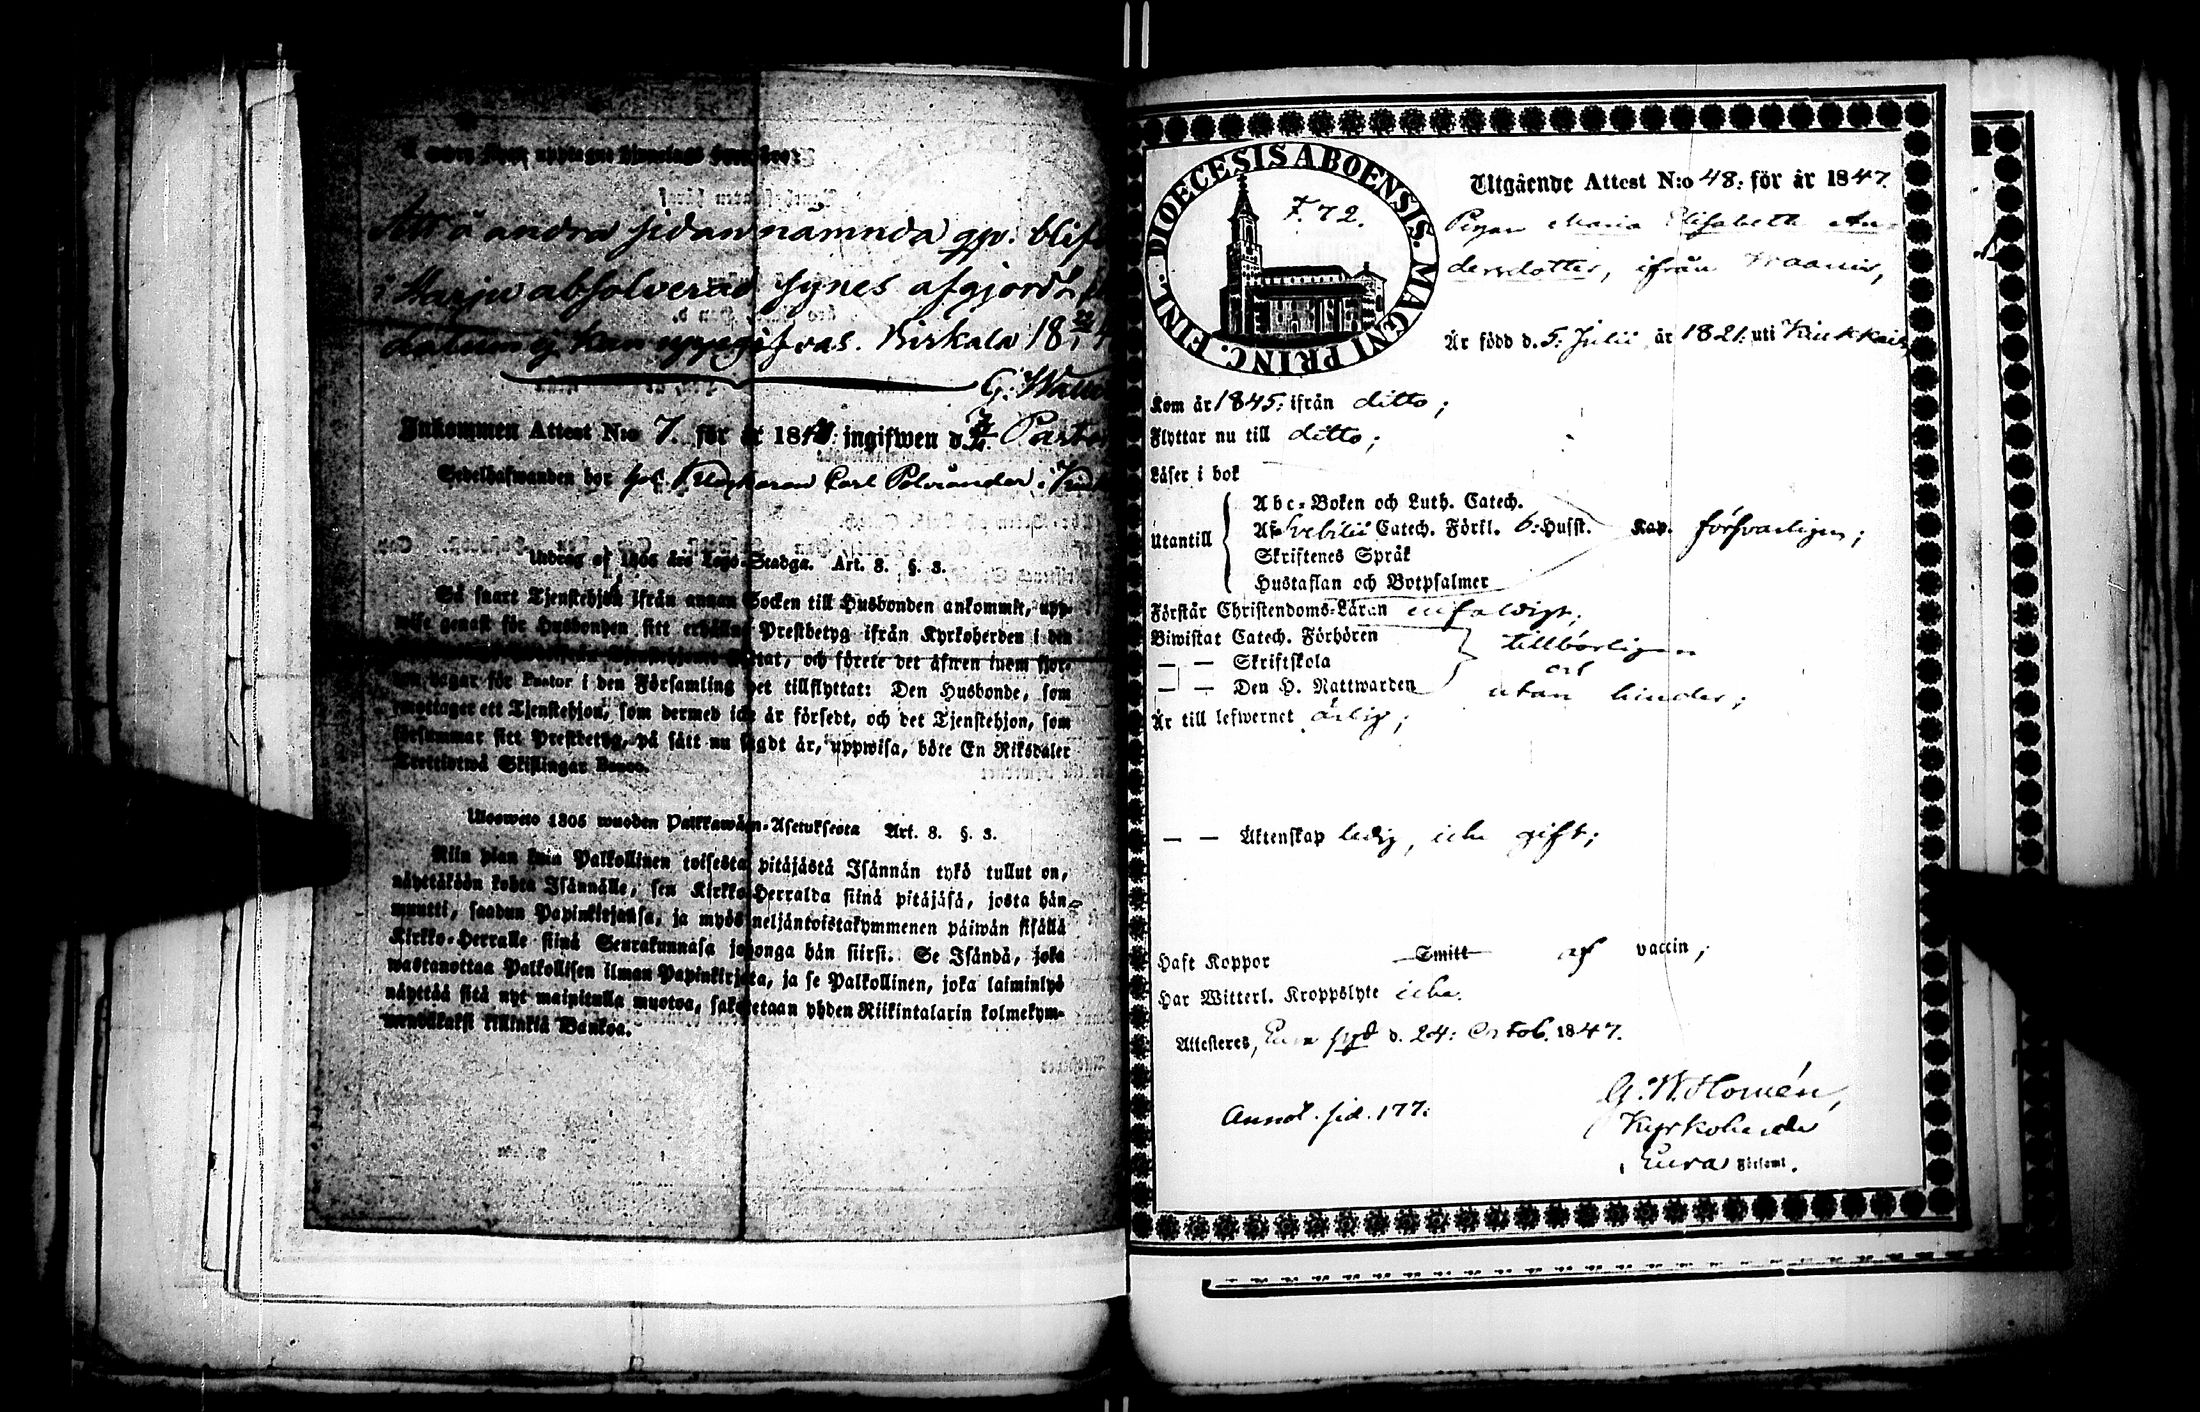 Att å andra sidan nämnda qp. blif
i Harju absolverad synes afgjordt,
datum ej kan uppgifvas. Birkala 18
G. Wall
Inkommen Attest N:o 7. för år 184 ingifwen d.
Sedelhafwanden bor hos Carl Polviander i
Utdrag af 1805 års Lego-Stadga. Art. 8. §. 3.
Så snart Tjenstehjon ifrån annan Socken till Husbonden ankommit, upp-
wise genast för Husbonden sitt erhållna Prestbetyg ifrån Kyrkoherden i den
flyttat, och förete det äfwen inom fjor-
ton dagar för Pastor i den Församling det tillflyttat: Den Husbonde, som
emottager ett Tjenstehjon, som dermed icke är försedt, och det Tjenstehjon, som
försummar sitt Prestbetyg, på sätt nu sagdt är, uppwisa, böte En Riksdaler
Trettiotwå Skillingar Banco.
Ulosweto 1805 wuoden Palkkawäen-Asetuksesta Art. 8. §. 3.
Niin pian kuin Palkollinen toisesta pitäjästä Isännän tykö tullut on,
näyttäköön kohta Isännälle, sen Kirkko-Herralda siinä pitäjäsä, josta hän
muutti, saadun Papinkirjansa, ja myös neljäntoistakymmenen päiwän sisällä
Kirkko-Herralle siinä Seurakunnasa johonga hän siirsi. Se Isändä, joka
wastanottaa Palkollisen ilman Papinkirjata, ja se Palkollinen, joka laiminlyö
näyttää sitä nyt mainitulla muotoa, sakoitetaan yhden Riikintalarin kolmekym-
mendäkaksi killinkiä Bankoa.
DIOECESIS ABOENSIS. MAGNI PRINC. FINL.
F. 72.
Utgående Attest N:o 48: för år 1847.
Pigan Maria Elisabeth An-
dersdotter, ifrån
Är född d. 5: Julii år 1821: uti Kiukkais
Kom år 1845: ifrån ditto;
Flyttar nu till ditto;
Läser i bok
Utantill
Abc-Boken och Luth. Catech.
Af Svebilii Catech. Förkl. 6: Husst. Kap. försvarligen;
Skriftenes Språk
Hustaflan och Botpsalmer
Förstår Christendoms-Läran enfaldigt;
Biwistat Catech. Förhören tillbörligen
— — Skriftskola och
— — Den H. Nattwarden utan hinder;
Är till lefwernet ärlig;
— — Äktenskap ledig, icke gift;
Haft Koppor Smitt af vaccin;
Har Witterl. Kroppslyte icke.
Attesteres, Eura pgd d. 24: Octob. 1847.
G. W. Homén,
Annot. sid. 177:
Kyrkoherde
i Eura Församl.